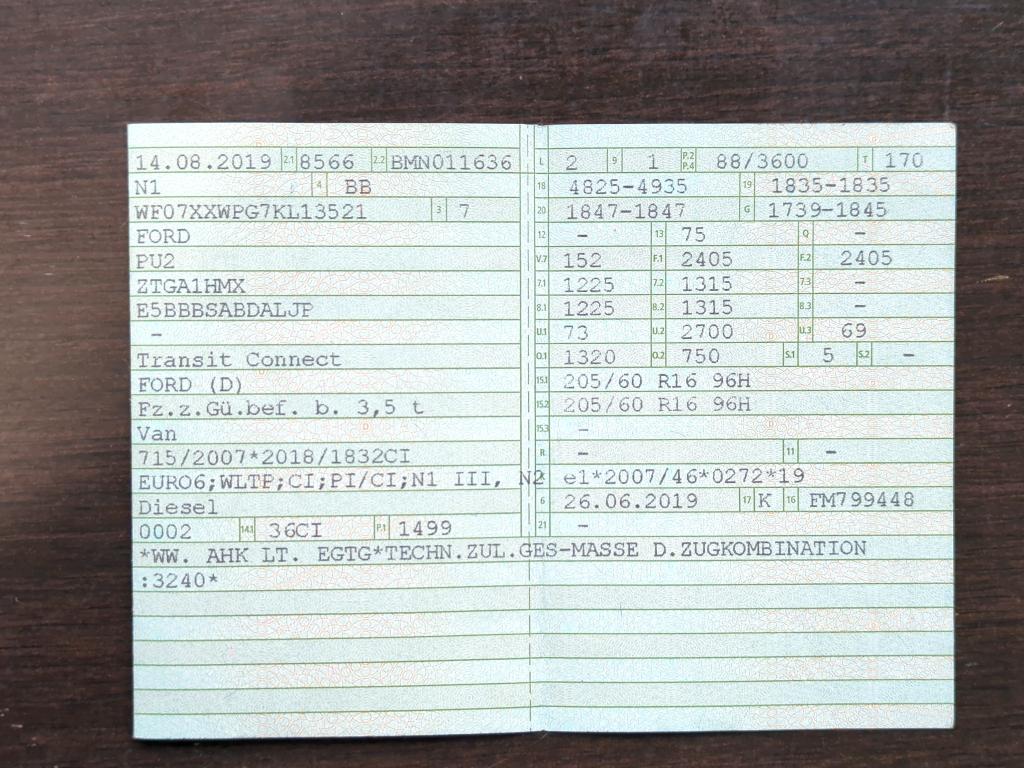 14.08.2019 2.1 8566 2.2 BMN011636
N1 4 BB
WF07XXWPG7KL13521 3 7
FORD
PU2
ZTGA1HMX
E5BBBSABDALJP
–
Transit Connect
FORD (D)
Fz.z.Gü.bef. b. 3,5 t
Van
715/2007*2018/1832CI
EURO6;WLTP;CI;PI/CI;N1 III, N2
Diesel
0002 14.1 36CI P.1 1499
L 2 9 1 P.2 P.4 88/3600 T 170
18 4825–4935 19 1835–1835
20 1847–1847 G 1739–1845
12 – 13 75 Q –
V.7 152 F.1 2405 F.2 2405
7.1 1225 7.2 1315 7.3 –
8.1 1225 8.2 1315 8.3 –
U.1 73 U.2 2700 U.3 69
O.1 1320 O.2 750 S.1 5 S.2 –
15.1 205/60 R16 96H
15.2 205/60 R16 96H
15.3 –
R – 11 –
e1*2007/46*0272*19
6 26.06.2019 17 K 16 FM799448
21 –
*WW. AHK LT. EGTG*TECHN.ZUL.GES-MASSE D.ZUGKOMBINATION
:3240*